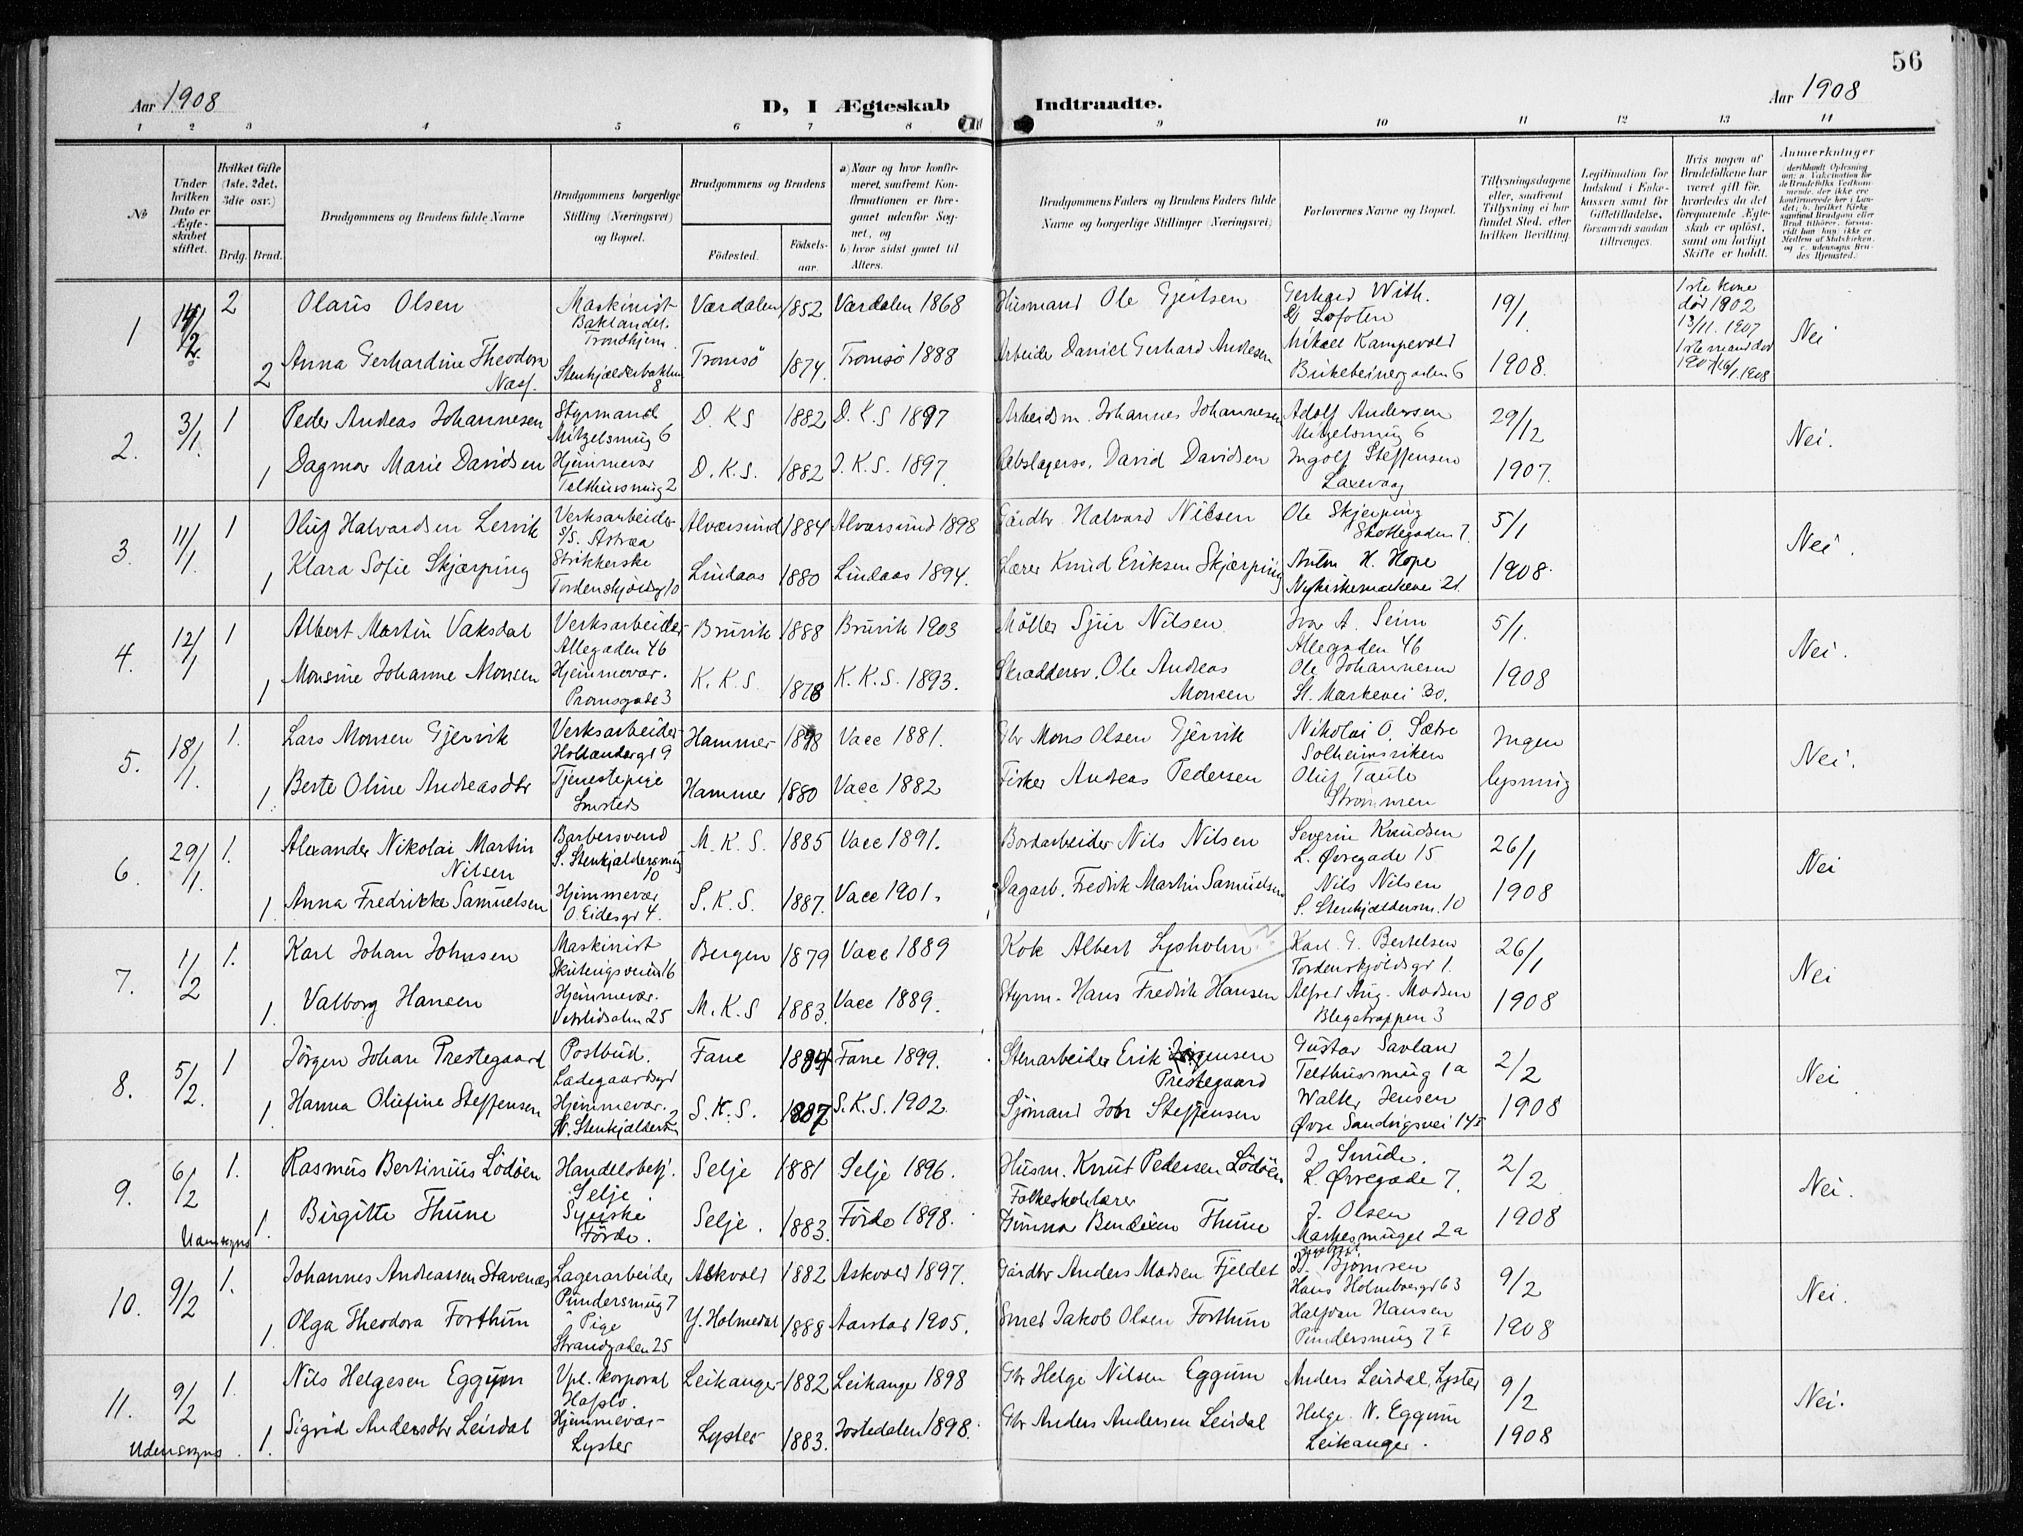 56
Aar 1908
D, I Ægteskab Indtraadte.
Aar 1908
1 2 3 4 5 6 7 8 9 10 11 12 13 14
No
Under hvilken Dato er Ægteskabet stiftet.
Hvilket Gifte (1ste, 2det, 3die osv.)
Brdg. Brud.
Brudgommens og Brudens fulde Navne
Brudgommens borgerlige Stilling (Næringsvei) og Bopæl.
Brudgommens og Brudens
Fødested.
Fødselsaar.
a) Naar og hvor konfirmeret, saafremt Konfirmationen er foregaaet udenfor Sognet, og
b) hvor sidst gaaet til Alters.
Brudgommens Faders og Brudens Faders fulde Navne og borgerlige Stillinger (Næringsvei)
Forlovernes Navne og Bopæl.
Tillysningsdagene eller, saafremt Tillysning ei har fundet Sted, efter hvilken Bevilling.
Legitimation for Indskud i Enkekassen samt for Giftetilladelse, forsaavidt saadan tiltrænges.
Hvis nogen af Brudefolkene har været gift før, hvorledes da det foregaaende Ægteskab er opløst, samt om lovligt Skifte er holdt.
Anmerkninger
1 2 Olaris Olsen Maskinist Baklandet. Trondhjem. Værdalen 1852 Værdalen 1868 Husmand Ole Gjertsen Gerhard With. Lofoten 19/1 1ste kone død 1902 13/11. 1907 Nei
2 Anna Gerhardine Theodora Næss. Stenkjælderbakken 8 Tromsö 1874. Tromsö 1888 Arbeider Daniel Gerhard Andresen Mikael Kampevold Birkebeinergaden 6 1908. 1ste mand død
2. 3/1. 1 Peder Andreas Johannesen Styrmand Mitzelsmug 6 D. K S 1882 D. K S 1897 Arbeidsm. Johannes Johannesen Adolf Andersen Mitzelsmug 6 29/12 Nei.
1 Dagmar Marie Davidsen Hjemmevær Telthussmug 2 D. K. S. 1882 D. K. S. 1897. Rebslagerss. David Davidsen Ingolf Steffensen Laxevaag 1907.
3. 11/1. 1 Oluf Halvardsen Lervik Verksarbeider S/S. Astræa Alværsund 1884 Alværsund 1898 Gårdbr Halvard Nilsen Ole Skjerping Skottegaden 7. 5/1 Nei.
1 Klara Sofie Skjærping Strikkerske Tordenskjoldsg 10 Lindaas 1880 Lindaas 1894. Lærer Knud Eriksen Skjærping Anton H. Hope Nykirkemarkevei 21. 1908.
4. 12/1 1 Albert Martin Vaksdal Verksarbeider Allegaden 46 Bruvik 1888 Bruvik 1903 Möller Sjur Nilsen Ivar A. Seim Allegaden 46 5/1. Nei.
1 Monsine Johanne Monsen Hjemmevær. Pramsgade 3 K. K. S. 1878 K. K. S. 1893. Skræddersv. Ole Andreas Monsen Ole Johannesen St. Markevei 30. 1908
5. 18/1. 1. Lars Monsen Gjervik Verksarbeider Hollændergt 9 Hammer 1878 Vacc 1881. Gbr Mons Olsen Gjervik Nikolai O. Sætre Solheimsviken Ingen Nei.
1. Berte Oline Andreasdtr Tjenestepige Hammer 1880 Vacc 1882 Fisker Andreas Pedersen Oluf Taule Strömmen lysning
6. 29/1. 1. Alexander Nikolai Martin Nilsen Barbersvend S. Stenkjældersmug 10 M. K. S. 1885 Vacc 1891. Bordarbeider Nils Nilsen Severin Knudsen L. Øvregade 15 26/1 Nei
1. Anna Fredrikke Samuelsen Hjemmevær O. Eidesgt 4. S. K. S. 1887. Vacc 1901. Dagarb. Fredrik Martin Samuelsen Nils Nilsen S. Stenkjældersm. 10 1908
7. 1/2 1. Karl Johan Johnsen Maskinist Skuteviksveien 16 Bergen 1879 Vacc 1889 Kok Albert Lysholm Karl G. Bertelsen Tordenskjoldsgt 1. 26/1 Nei
1. Valborg Hansen Hjemmevær. Vetrlidsalm 25 M. K. S 1883. Vacc 1889. Styrm. Hans Fredrik Hansen Alfred Aug. Madsen Blegetrappen 3 1908
8. 5/2. 1 Jörgen Johan Prestegaard Postbud. Ladegaardsgt Fane 1884 Fane 1899. Stenarbeider Erik Jörgensen Prestegaard Gustav Savland Telthussmug 1a 2/2 Nei
1. Hanna Olufine Steffensen Hjemmevær. St. Stenkjældersm 2 S. K. S. 1887 S. K. S. 1902. Sjömand John Steffensen Walter Jensen Øvre Sandvigsvei 14 1908
9. 6/2 1. Rasmus Bertinius Lödöen Handelsbetj. Selje. Selje 1881 Selje 1896. Husm. Knut Pedersen Lödöen J. Smide. L. Øvregade 7. 2/2 Nei.
Udensogns 1. Birgitte Thune Syerske Förde. Selje. 1883. Förde 1898. Folkeskolelærer Gunnar Bendixen Thune J. Olsen Markesmuget 2a 1908
10. 9/2 1. Johannes Andreassen Stavenæs Lagerarbeider Pundersmug 7 Askvold 1882 Askvold 1897. Gårdbr Anders Madsen Fjeldet Björnsen Hans Holmboesgt 63 9/2 Nei.
1. Olga Theodora Forthun Pige Strandgaden 25 Y. Holmedal 1888 Aarstad 1905. Smed Jakob Olsen Forthun Halfdan Hansen Pundersmug 7 I 1908
11. 9/2 1. Nils Helgesen Eggum Vpl. korporal Hafslo. Leikanger 1882 Leikanger 1898 Gbr Helge Nilsen Eggum Anders Leirdal, Lyster 9/2 Nei.
Udensogns. 1. Sigrid Andersdtr Leirdal Hjemmevær Lyster Lyster 1883. Jostedalen 1898. Gbr Anders Andersen Leirdal Helge N. Eggum Leikanger. 1908